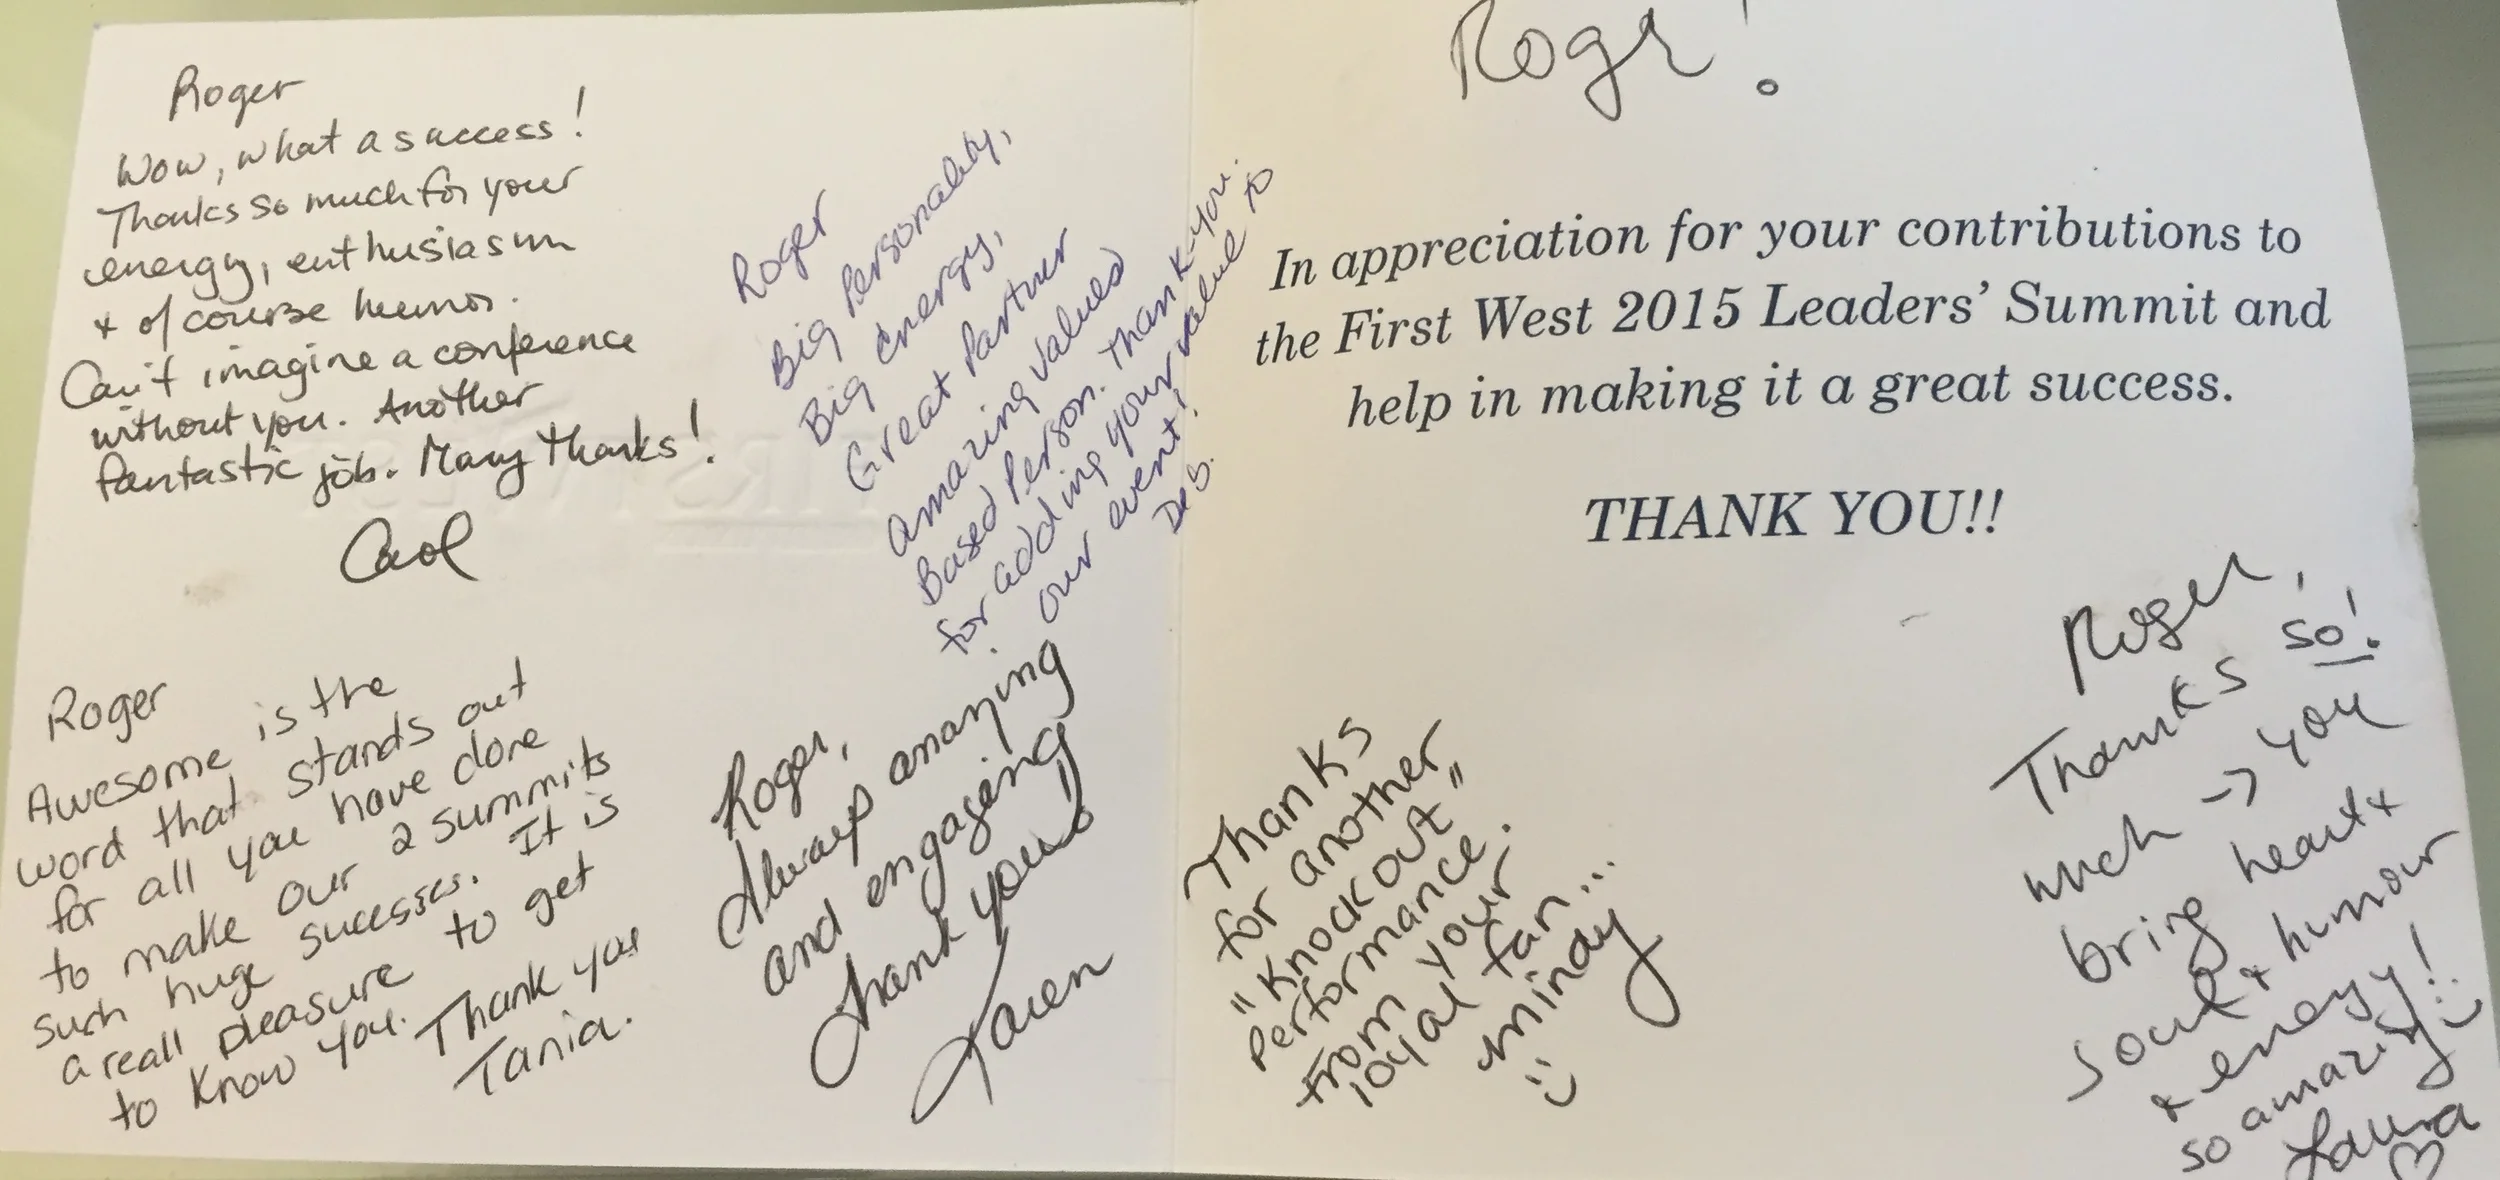 Roger
Wow, what a success!
Thanks so much for your
energy, enthusiasm
+ of course humor.
Can't imagine a conference
without you. Another
fantastic job. Many thanks!
Carol
Roger
Big Personality,
Big Energy,
Great Partner
amazing values
Based Person. Thank-you.
for adding your value to
our event!
Deb.
Roger
Awesome is the
word that stands out
for all you have done
to make our 2 summits
such huge sucesses. It is
a reall pleasure to get
to know you. Thank you
Tania.
Roger,
Always amazing
and engaging
Thank you
Karen
Roger!
In appreciation for your contributions to
the First West 2015 Leaders' Summit and
help in making it a great success.
THANK YOU!!
Thanks
for another
"Knockout"
Performance.
From your
loyal fan...
Mindy
Roger,
Thanks so!
much → you
bring heart +
soul + humour
+ energy!
so amazing
Laura